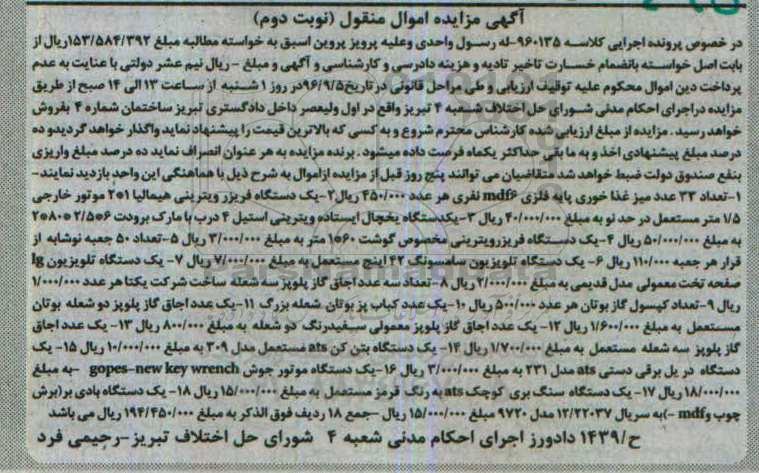 آگهی مزایده اموال منقول (نوبت دوم)
در خصوص پرونده اجرایی کلاسه ۹۶۰۱۳۵-له رسول واحدی وعلیه پرویز پروین اسبق به خواسته مطالبه مبلغ ۱۵۳/۵۸۴/۳۹۲ریال از
بابت اصل خواسته بانضمام خسارت تاخیر تادیه و هزینه دادرسی و کارشناسی و آگهی و مبلغ - ریال نیم عشر دولتی با عنایت به عدم
پرداخت دین اموال محکوم علیه توقیف ارزیابی و طی مراحل قانونی در تاریخ۹۶/۹/۵در روز ۱شنبه از ساعت ۱۳ الی ۱۴ صبح از طریق
مزایده دراجرای احکام مدنی شورای حل اختلاف شعبه ۴ تبریز واقع در اول ولیعصر داخل دادگستری تبریز ساختمان شماره ۴ بفروش
خواهد رسید. مزایده از مبلغ ارزیابی شده کارشناس محترم شروع و به کسی که بالاترین قیمت را پیشنهاد نماید واگذار خواهد گردید و ده
درصد مبلغ پیشنهادی اخذ و به ما بقی حداکثر یکماه فرصت داده میشود. برنده مزایده به هر عنوان انصراف نماید ده درصد مبلغ واریزی
بنفع صندوق دولت ضبط خواهد شد متقاضیان می توانند پنج روز قبل از مزایده ازاموال به شرح ذیل با هماهنگی این واحد بازدید نمایند-
۱-تعداد ۳۳ عدد میز غذا خوری پایه فلزی mdf۶ نفری هر عدد ۴۵۰/۰۰۰ ریال۲-یک دستگاه فریزر ویترینی هیمالیا ۱*۲ موتور خارجی
۱/۵ متر مستعمل در حد نو به مبلغ ۴۰/۰۰۰/۰۰۰ ریال ۳-یکدستگاه یخچال ایستاده ویترینی استیل ۴ درب با مارک برودت ۲/۵۰۶*۲*۸۰
به مبلغ ۵۰/۰۰۰/۰۰۰ ریال ۴-یک دستگاه فریزرویترینی مخصوص گوشت ۱*۶۰ متر به مبلغ ۳/۰۰۰/۰۰۰ ریال ۵-تعداد ۵۰ جعبه نوشابه از
قرار هر جعبه ۱۱۰/۰۰۰ ریال ۶- یک دستگاه تلویزیون سامسونگ ۴۲ اینچ مستعمل به مبلغ ۷/۰۰۰/۰۰۰ ریال ۷- یک دستگاه تلویزیون lg
صفحه تخت معمولی مدل قدیمی به مبلغ ۲/۰۰۰/۰۰۰ ریال ۸-تعداد سه عدد اجاق گاز پلوپز سه شعله ساخت شرکت یکتا هر عدد ۱/۰۰۰/۰۰۰
ریال ۹-تعداد کپسول گاز بوتان هر عدد ۵۰۰/۰۰۰ ریال ۱۰-یک عدد کباب پز بوتان شعله بزرگ ۱۱-یک عدد اجاق گاز پلوپز دو شعله بوتان
مستعمل به مبلغ ۱/۶۰۰/۰۰۰ ریال ۱۲- یک عدد اجاق گاز پلوپز معمولی سفیدرنگ دو شعله به مبلغ ۸۰۰/۰۰۰ ریال ۱۳- یک عدد اجاق
گاز پلوپز سه شعله مستعمل به مبلغ ۱/۷۰۰/۰۰۰ ریال ۱۴- یک دستگاه بتن کن ats مستعمل مدل ۳۰۹ به مبلغ ۱۰/۰۰۰/۰۰۰ ریال ۱۵- یک
دستگاه در یل برقی دستی ats مدل ۲۳۱ به مبلغ ۳/۰۰۰/۰۰۰ ریال ۱۶-یک دستگاه موتور جوش gopes-new key wrench -به مبلغ
۱۸/۰۰۰/۰۰۰ ریال ۱۷- یک دستگاه سنگ بری کوچک ats به رنگ قرمز مستعمل به مبلغ ۱۵/۰۰۰/۰۰۰ ریال ۱۸- یک دستگاه بادی بر(برش
چوب وmdf -)به سریال ۱۲/۲۲۰۳۷ مدل ۹۷۲۰ مبلغ ۱۵/۰۰۰/۰۰۰ ریال -جمع ۱۸ ردیف فوق الذکر به مبلغ ۱۹۴/۴۵۰/۰۰۰ ریال می باشد
ح/۱۴۳۹ دادورز اجرای احکام مدنی شعبه ۴ شورای حل اختلاف تبریز-رحیمی فرد